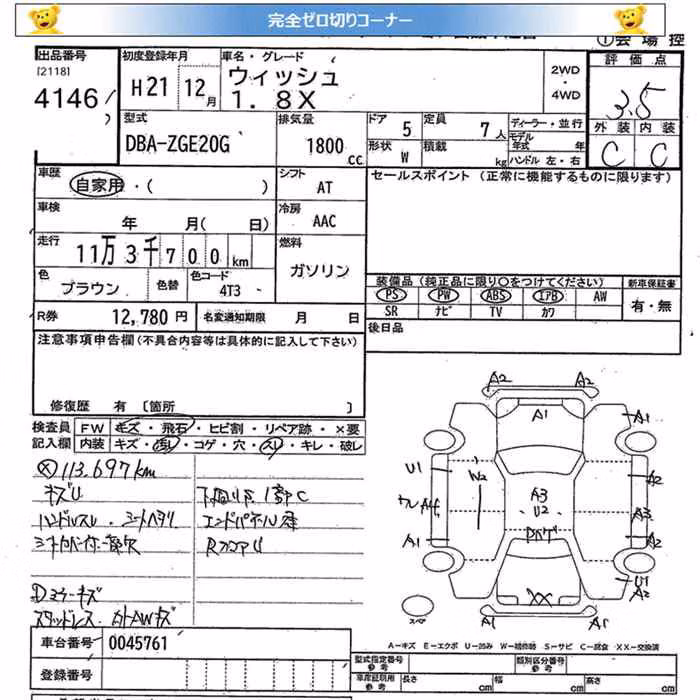 完全ゼロ切りコーナー
①会場控
出品番号
[2118]
4146
初度登録年月
H21 12月
車名・グレード
ウィッシュ
1.8X
2WD
・
4WD
評価点
3.5
外装 内装
C C
型式
DBA-ZGE20G
排気量
1800
cc
ドア 5
定員 7人
形状 W
積載 kg
ディーラー・並行
モデル年式 年
ハンドル 左・右
車歴
自家用・( )
シフト
AT
セールスポイント (正常に機能するものに限ります)
車検
年 月( 日)
冷房
AAC
走行
11万3千700km
燃料
ガソリン
色
ブラウン
色替
色コード
4T3
装備品 (純正品に限り○をつけてください)
新車保証書
PS PW ABS エアB AW
SR ナビ TV カワ
有・無
R券 12,780円
名変通知期限 月 日
後日品
注意事項申告欄(不具合内容等は具体的に記入して下さい)
修復歴 有 〔箇所 〕
検査員 FW キズ・飛石・ヒビ割・リペア跡・×要
記入欄 内装 キズ・汚レ・コゲ・穴・スレ・キレ・破レ
113.697km
キズU
下回りS 1部C
ハンドルスレ・シートヘタリ
エンドパネルU
RコアU
Dミラーキズ
スタッドレス 社外AWキズ
A2 A2
A1 A1
U1 W2 A2
A3
U2
A3
A1 A2
U1
A2
XX
スペア
A1 A1
A－キズ E－エクボ U－凹み W－補修跡 S－サビ C－腐食 XX－交換済
車台番号 0045761
登録番号
型式指定番号
参考
類別区分番号
参考
車庫証明用
参考
長さ cm
幅 cm
高さ cm